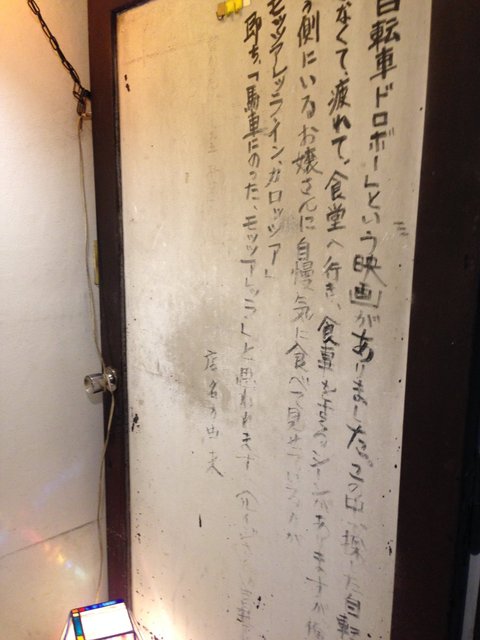 自転車ドロボー」という映画がありました。この中で探した自転
なくて、疲れて、食堂へ行き、食事をするシーンがありますが
側にいるお嬢さんに自慢気に食べて見せ
モッツアレッラ・イン・カロッツア」
即ち、「馬車にのった、モッツアレッラ」と思われます
店名の由来